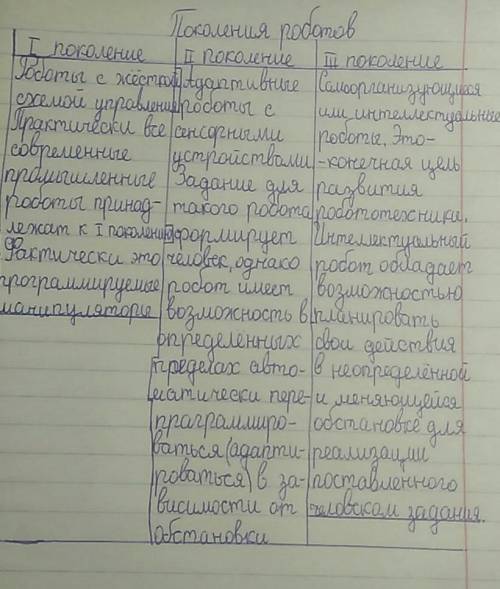 Поколения роботов
I поколение
Роботы с жёсткой
схемой управления
Практически все
современные
промышленные
роботы принад-
лежат к I поколению
Фактически это
программируемые
манипуляторы
II поколение
Адаптивные
роботы с
сенсорными
устройствами
Задание для
такого робота
формирует
человек, однако
робот имеет
возможность в
определенных
пределах авто-
матически пере-
программиро-
ваться (адапти-
роваться) в за-
висимости от
обстановки
III поколение
Самоорганизующиеся
или интеллектуальные
роботы. Это-
-конечная цель
развития
робототехники.
Интеллектуальный
робот обладает
возможностью
планировать
свои действия
в неопределённой
и меняющейся
обстановке для
реализации
поставленного
человеком задания.